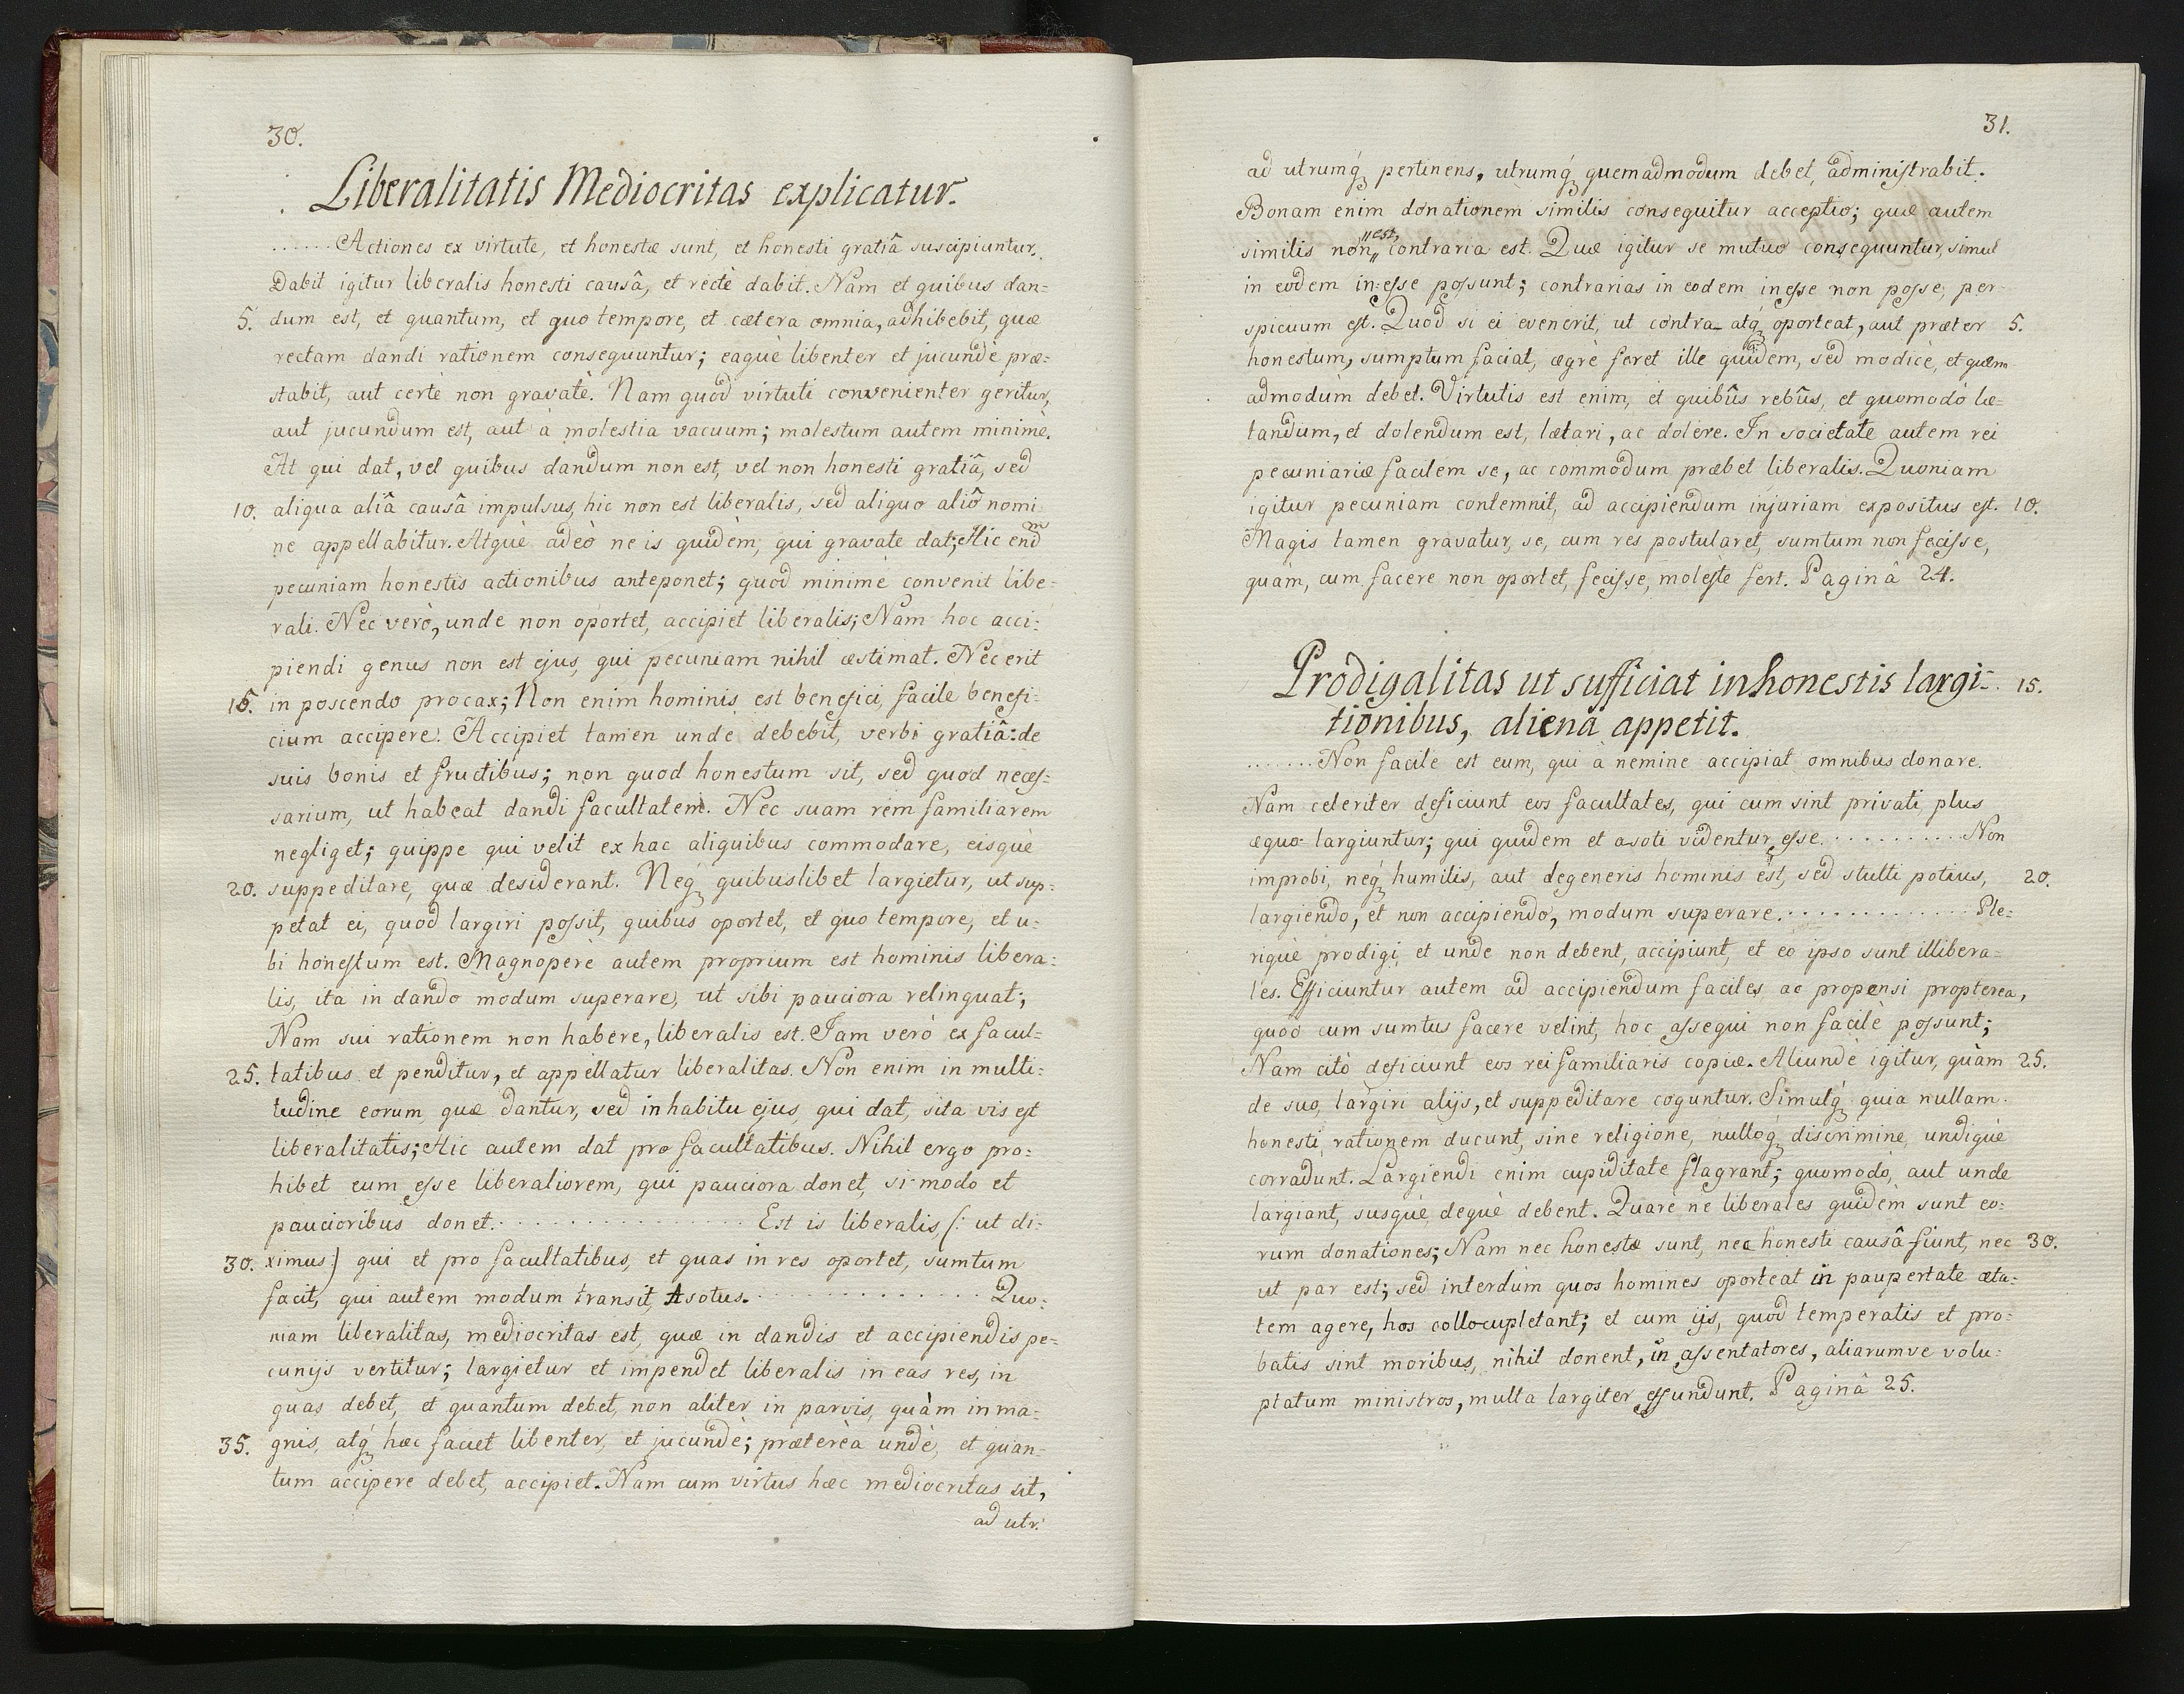 30.
Liberalitatis Mediocritas explicatur.
......Actiones ex virtute, et honestæ sunt, et honesti gratiâ suscipiuntur.
Dabit igitur liberalis honesti causâ, et rectè dabit. Nam et quibus dan=
5. dum est, et quantum, et quo tempore, et cætera omnia, adhibebit, quæ
rectam dandi rationem consequuntur; eaquè libenter et jucundè præ=
stabit, aut certè non gravatè. Nam quod virtuti convenienter geritur,
aut jucundum est, aut à molestia vacuum; molestum autem minimè.
At qui dat, vel quibus dandum non est, vel non honesti gratiâ, sed
10. aliqua aliâ causâ impulsus, hic non est liberalis, sed aliquo aliô nomi
ne appellabitur. Atquè adeò ne is quidèm, qui gravate dat; Hic enim
pecuniam honestis actionibus anteponet; quod minimè convenit libe=
rali. Nec verò, unde non oportet, accipiet liberalis; Nam hoc acci=
piendi genus non est ejus, qui pecuniam nihil æstimat. Nec erit
15. in poscendo procax; Non enim hominis est benefici, facilè benefi=
cium accipere. Accipiet tamen undè debebit, verbi gratiâ: de
suis bonis et fructibus; non quod honestum sit, sed quod neces=
sarium, ut habeat dandi facultatem. Nec suam rem familiarem
negliget; quippe qui velit ex hac aliquibus commodare, eisquè
20. suppeditare, quæ desiderant. Neq́ quibuslibet largietur, ut sup=
petat ei, quod largiri possit, quibus oportet, et quo tempore, et u=
bi honestum est. Magnoperè autem proprium est hominis libera=
lis, ita in dando modum superare, ut sibi pauciora relinquat;
Nam sui rationem non habere, liberalis est. Iam verò ex facul=
25. tatibus et penditur, et appellatur liberalitas. Non enim in multi=
tudine eorum, quæ dantur, sed in habitu ejus, qui dat, sita vis est
liberalitatis; Hic autem dat pro facultatibus. Nihil ergo pro=
hibet eum esse liberaliorem, qui pauciora donet, si modo et
paucioribus donet. . . . . . . . . . . . . . . Est is liberalis, (: ut di=
30. ximus:) qui et pro facultatibus, et quas in res oportet, sumtum
facit, qui autem modum transit, Asotus. . . . . . . . . . . . . . Quo=
niam liberalitas, mediocritas est, quæ in dandis et accipiendis pe=
cunijs vertitur; largietur et impendet liberalis in eas res, in
quas debet, et quantum debet, non aliter in parvis, quàm in ma=
35. gnis, atq́ hæc faciet libenter, et jucundè; præterèa undè, et quan=
tum accipere debet, accipiet. Nam cum virtus hæc mediocritas sit,
ad utr:
31.
ad utrumq́ pertinens, utrumq́ quemadmodum debet, administrabit.
Bonam enim donationem similis consequitur acceptio; quæ autem
similis non "est, contraria est. Quæ igitur se mutuo consequuntur, simul
in eodem in=esse possunt; contrarias in eodem inesse non posse, per=
spicuum est. Quod si ei evenerit, ut contra atq́ oporteat, aut præter 5.
honestum, sumptum faciat, ægrè feret ille quidem, sed modicè, et quem=
admodùm debet. Virtutis est enim, et quibûs rebûs, et quomodò læ=
tandum, et dolendum est, lætari, ac dolere. In societate autem rei
pecuniariæ facilem se, ac commodum præbet liberalis. Quoniam
igitur pecuniam contemnit, ad accipiendum injuriam expositus est. 10.
Magis tamen gravatur, se, cum res postularet, sumtum non fecisse,
quàm, cum facere non oportet, fecisse, molestè fert. Paginâ 24.
Prodigalitas ut sufficiat inhonestis largi= 15.
tionibus, aliena appetit.
.......Non facile est eum, qui à nemine accipiat omnibus donare.
Nam celeriter deficiunt eos facultates, qui cum sint privati plus
æquo largiuntur; qui quidem et asoti videntur esse. . . . . . . . . . . Non
improbi, neq́ humilis, aut degeneris hominis est, sed stulti potius, 20.
largiendo, et non accipiendo, modum superare. . . . . . . . . . . . . . Ple=
riquè prodigi, et unde non debent, accipiunt, et eo ipso sunt illibera=
les. Efficiuntur autem ad accipiendum faciles ac propensi propterea,
quod cum sumtus facere velint, hoc assequi non facilè possunt;
Nam citò deficiunt eos rei familiaris copiæ. Aliundè igitur, quàm 25.
de suo, largiri alijs, et suppeditare coguntur. Simulq́ quia nullam
honesti rationem ducunt, sine religione, nulloq́ discrimine, undiquè
corradunt. Largiendi enim cupiditate flagrant; quomodo, aut unde
largiant, susquè dequè debent. Quarè ne liberales quidèm sunt eo=
rum donationes; Nam nec honestæ sunt, nec honesti causâ fiunt, nec 30.
ut par est; sed interdùm quos homines oporteat in paupertate æta=
tem agere, hos collocupletant; et cum ijs, quod temperatis et pro=
batis sint moribus, nihil donent, in assentatores, aliarumve volu=
ptatum ministros, multa largiter effundunt. Paginâ 25.